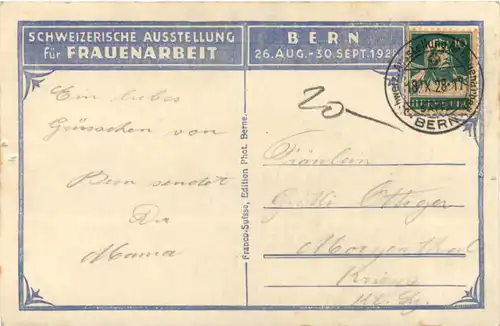 SCHWEIZERISCHE AUSSTELLUNG
für FRAUENARBEIT
BERN
26. AUG.-30. SEPT. 1928
BERN
20
Ein liebes
Grüsschen von
Bern sendet
Dir
Mama
Franco-Suisse, Edition Phot. Berne.
Fräulein
Ottiger
Morgenthal
Kriens
Kt. Lz.